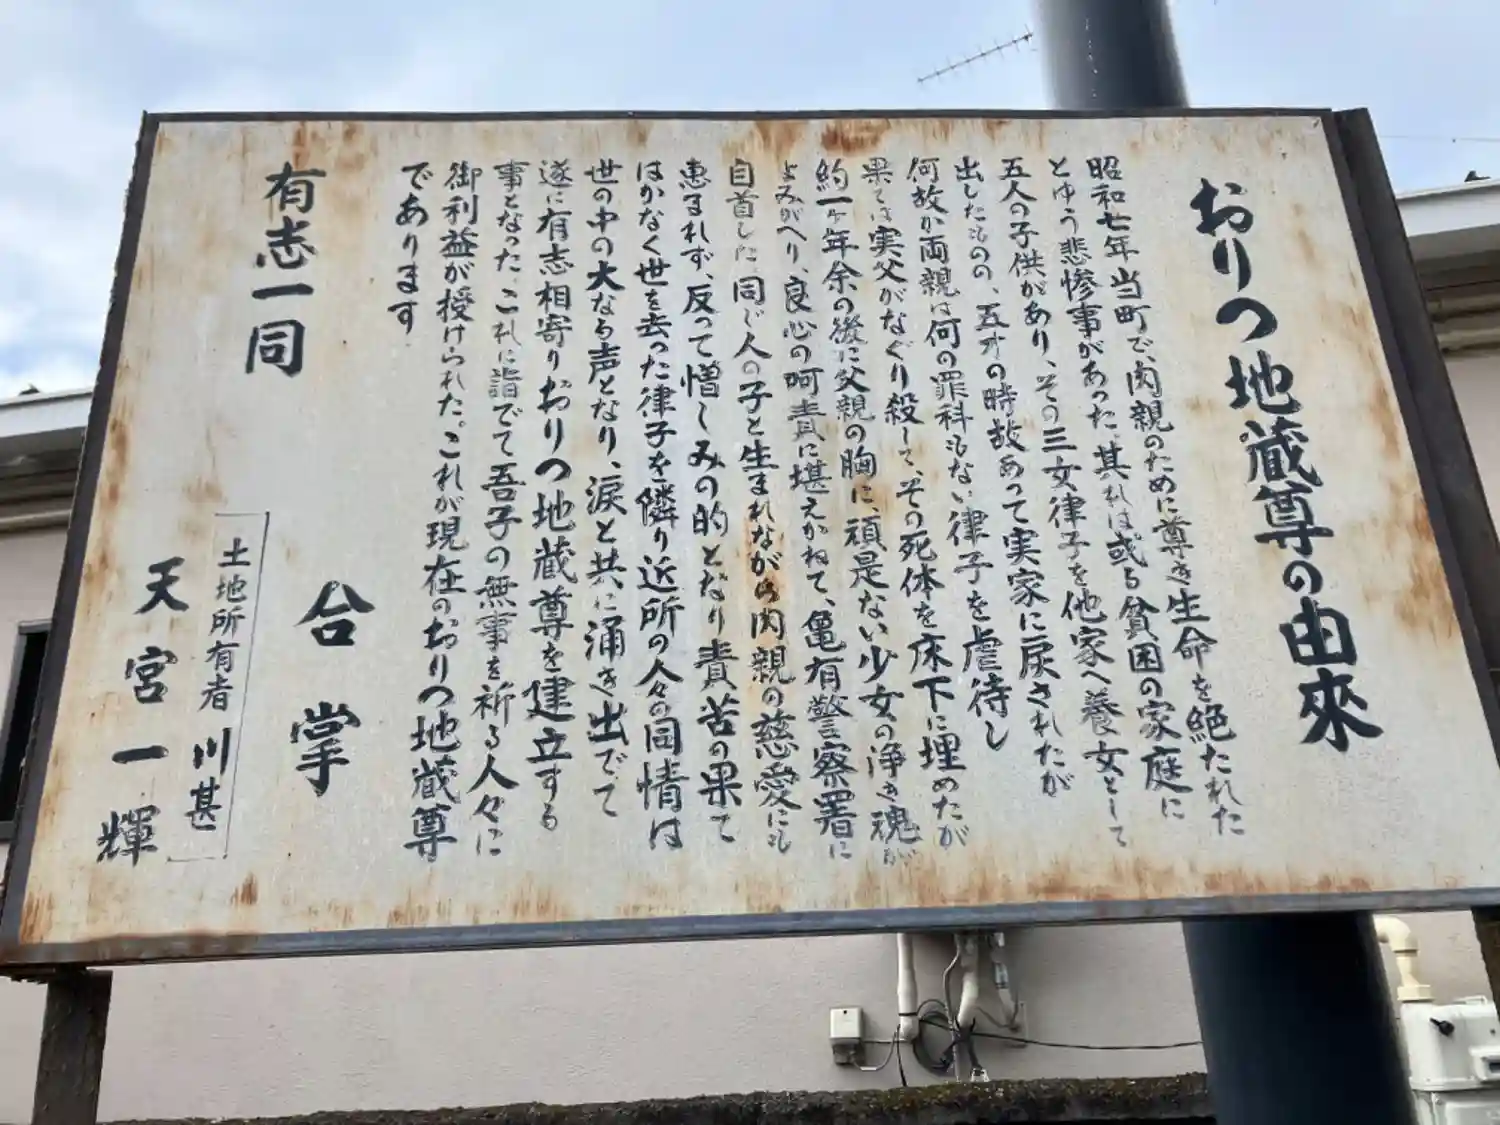 おりつ地蔵尊の由來
昭和七年当町で、肉親のために尊き生命を絶たれた
とゆう悲惨事があった。其れは或る貧困の家庭に
五人の子供があり、その三女律子を他家へ養女として
出したものの、五才の時故あって実家に戻されたが
何故か両親は何の罪科もない律子を虐待し
果ては実父がなぐり殺して、その死体を床下に埋めたが
約一ヶ年余の後に父親の胸に、頑是ない少女の浄き魂が
よみがへり、良心の呵責に堪えかねて、亀有警察署に
自首した 同じ人の子と生まれながら肉親の慈愛にも
恵まれず、反って憎しみの的となり責苦の果て
はかなく世を去った律子を隣り近所の人々の同情は
世の中の大なる声となり、涙と共に涌き出でて
遂に有志相寄りおりつ地蔵尊を建立する
事となった、これに詣でて吾子の無事を祈る人々に
御利益が授けられた。これが現在のおりつ地蔵尊
であります
合掌
有志一同
土地所有者 川甚
天宮一輝